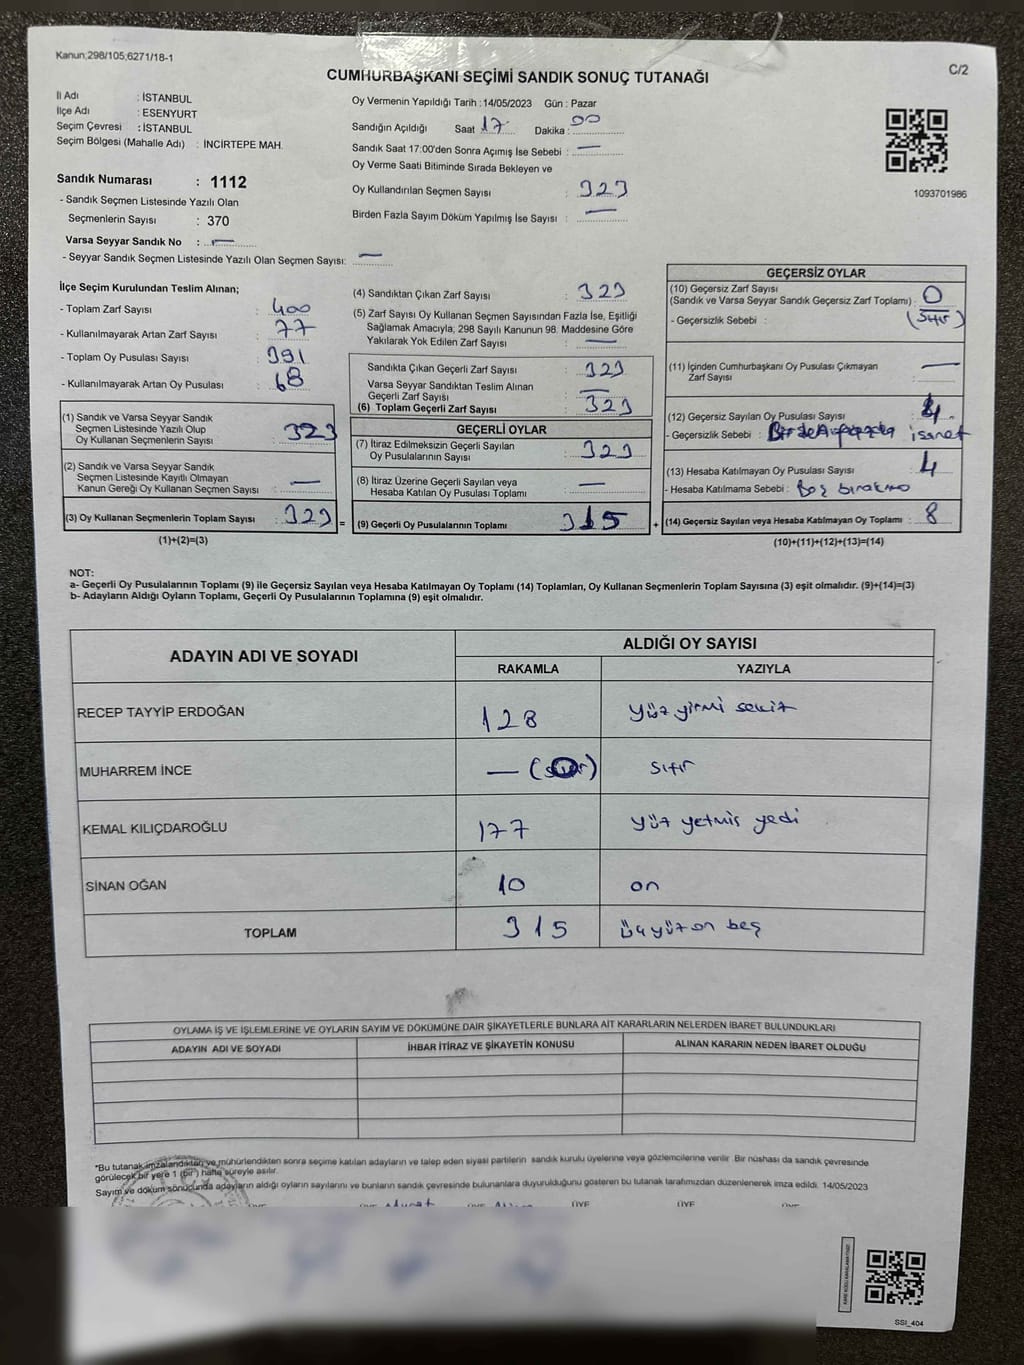 Kanun;298/105;6271/18-1
CUMHURBAŞKANI SEÇİMİ SANDIK SONUÇ TUTANAĞI
C/2
İl Adı : İSTANBUL
İlçe Adı : ESENYURT
Seçim Çevresi : İSTANBUL
Seçim Bölgesi (Mahalle Adı) : İNCİRTEPE MAH.
Sandık Numarası : 1112
- Sandık Seçmen Listesinde Yazılı Olan
Seçmenlerin Sayısı : 370
Varsa Seyyar Sandık No : —
- Seyyar Sandık Seçmen Listesinde Yazılı Olan Seçmen Sayısı: —
Oy Vermenin Yapıldığı Tarih : 14/05/2023 Gün : Pazar
Sandığın Açıldığı Saat 17 Dakika : 00
Sandık Saat 17:00'den Sonra Açımış İse Sebebi : —
Oy Verme Saati Bitiminde Sırada Bekleyen ve
Oy Kullandırılan Seçmen Sayısı : 323
Birden Fazla Sayım Döküm Yapılmış İse Sayısı : —
1093701986
İlçe Seçim Kurulundan Teslim Alınan;
- Toplam Zarf Sayısı : 400
- Kullanılmayarak Artan Zarf Sayısı : 77
- Toplam Oy Pusulası Sayısı : 391
- Kullanılmayarak Artan Oy Pusulası : 68
(1) Sandık ve Varsa Seyyar Sandık
Seçmen Listesinde Yazılı Olup
Oy Kullanan Seçmenlerin Sayısı : 323
(2) Sandık ve Varsa Seyyar Sandık
Seçmen Listesinde Kayıtlı Olmayan
Kanun Gereği Oy Kullanan Seçmen Sayısı : —
(3) Oy Kullanan Seçmenlerin Toplam Sayısı : 323 =
(1)+(2)=(3)
(4) Sandıktan Çıkan Zarf Sayısı : 323
(5) Zarf Sayısı Oy Kullanan Seçmen Sayısından Fazla İse, Eşitliği
Sağlamak Amacıyla; 298 Sayılı Kanunun 98. Maddesine Göre
Yakılarak Yok Edilen Zarf Sayısı : —
Sandıkta Çıkan Geçerli Zarf Sayısı : 323
Varsa Seyyar Sandıktan Teslim Alınan
Geçerli Zarf Sayısı : —
(6) Toplam Geçerli Zarf Sayısı : 323
GEÇERLİ OYLAR
(7) İtiraz Edilmeksizin Geçerli Sayılan
Oy Pusulalarının Sayısı : 323
(8) İtiraz Üzerine Geçerli Sayılan veya
Hesaba Katılan Oy Pusulası Toplamı : —
(9) Geçerli Oy Pusulalarının Toplamı : 315 +
GEÇERSİZ OYLAR
(10) Geçersiz Zarf Sayısı
(Sandık ve Varsa Seyyar Sandık Geçersiz Zarf Toplamı) : 0
- Geçersizlik Sebebi : (Sıfır)
(11) İçinden Cumhurbaşkanı Oy Pusulası Çıkmayan
Zarf Sayısı : —
(12) Geçersiz Sayılan Oy Pusulası Sayısı : 4
- Geçersizlik Sebebi : işaret
(13) Hesaba Katılmayan Oy Pusulası Sayısı : 4
- Hesaba Katılmama Sebebi : Boş bırakma
(14) Geçersiz Sayılan veya Hesaba Katılmayan Oy Toplamı : 8
(10)+(11)+(12)+(13)=(14)
NOT:
a- Geçerli Oy Pusulalarının Toplamı (9) ile Geçersiz Sayılan veya Hesaba Katılmayan Oy Toplamı (14) Toplamları, Oy Kullanan Seçmenlerin Toplam Sayısına (3) eşit olmalıdır. (9)+(14)=(3)
b- Adayların Aldığı Oyların Toplamı, Geçerli Oy Pusulalarının Toplamına (9) eşit olmalıdır.
ADAYIN ADI VE SOYADI
ALDIĞI OY SAYISI
RAKAMLA YAZIYLA
RECEP TAYYİP ERDOĞAN 128 yüz yirmi sekiz
MUHARREM İNCE — sıfır
KEMAL KILIÇDAROĞLU 177 yüz yetmis yedi
SİNAN OĞAN 10 on
TOPLAM 315 üçyüz on beş
OYLAMA İŞ VE İŞLEMLERİNE VE OYLARIN SAYIM VE DÖKÜMÜNE DAİR ŞİKAYETLERLE BUNLARA AİT KARARLARIN NELERDEN İBARET BULUNDUKLARI
ADAYIN ADI VE SOYADI İHBAR İTİRAZ VE ŞİKAYETİN KONUSU ALINAN KARARIN NEDEN İBARET OLDUĞU
*Bu tutanak imzalandıktan ve mühürlendikten sonra seçime katılan adayların ve talep eden siyasi partilerin sandık kurulu üyelerine veya gözlemcilerine verilir. Bir nüshası da sandık çevresinde
görülecek bir yere 1 (bir) hafta süreyle asılır.
Sayım ve döküm sonucunda adayların aldığı oyların sayılarını ve bunların sandık çevresinde bulunanlara duyurulduğunu gösteren bu tutanak tarafımızdan düzenlenerek imza edildi. 14/05/2023
ÜYE ÜYE ÜYE ÜYE ÜYE ÜYE
SSI_404